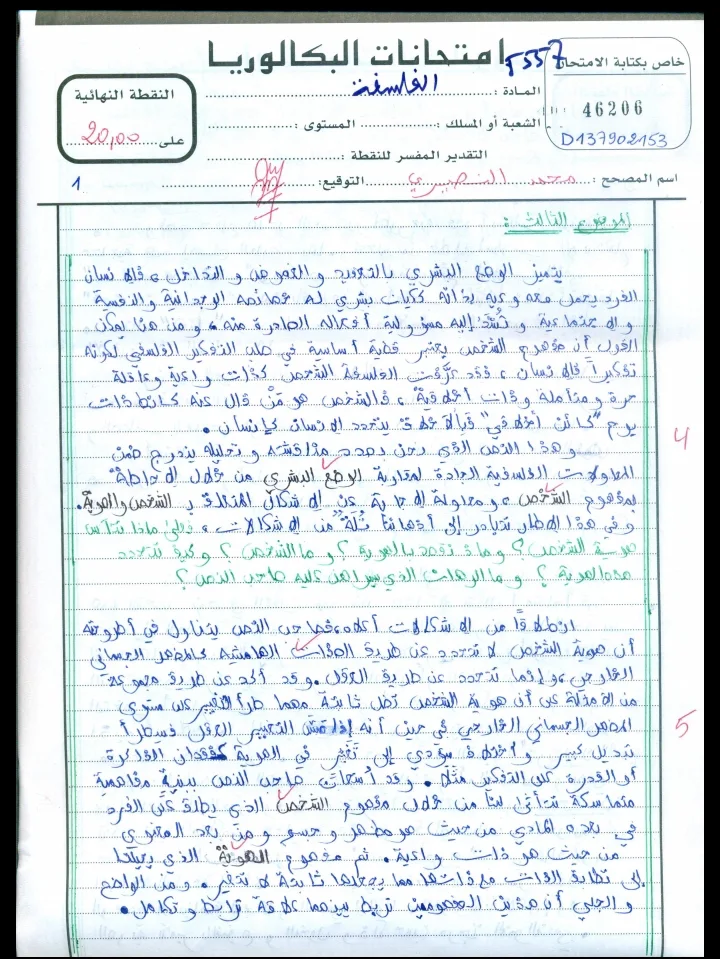 امتحانات البكالوريا
5557
خاص بكتابة الامتحان
46206
D137902153
المادة : الفلسفة
الشعبة أو المسلك : المستوى :
التقدير المفسر للنقطة :
النقطة النهائية
20,00 على
اسم المصحح : محمد التوقيع :
1
الموضوع الثالث :
يتميز الوضع البشري بالتعقيد والغموض و التداخل ، فالانسان
الفرد يحمل معه وعيه بذاته ككيان بشري له خصائصه الوجدانية والنفسية
والاجتماعية و تُسْنَدُ إليه مسؤولية أفعاله الصادرة منه ، ومن هنا يمكن
القول أن مفهوم الشخص يعتبر قضية أساسية في صلب التفكير الفلسفي لكونه
تفكيراً في الانسان ، فقد عرَّفت الفلسفة الشخص كذات واعية وعاقلة
حرة ومتأملة وذات أخلاقية ، فالشخص هو مَنْ قال عنه كانط ذات
يوم "كائن أخلاقي" فبالأخلاق يتحدد الانسان كإنسان .
و هذا النص الذي نحن بصدد مناقشته و تحليله يندرج ضمن
المحاولات الفلسفية الجادة لمقاربة الوضع البشري من خلال الإحاطة
بمفهوم الشخص ، و محاولة الإجابة عن الإشكال المتعلق بـ الشخص والهوية .
وفي هذا الإطار تتبادر إلى أذهاننا ثُلَّةٌ من الإشكالات ، فعلى ماذا تتأسس
هوية الشخص ؟ وماذا نقصد بالهوية ؟ و ما الشخص ؟ وكيف تتحدد
هذه الهوية ؟ وما الرهانات الذي يراهن عليه صاحب النص ؟
4
انطلاقاً من الإشكالات أعلاه ، فصاحب النص يتناول في أطروحته
أن هوية الشخص لا تتحدد عن طريق الصفات الهامشية كالمظهر الجسماني
الخارجي ، وإنما تتحدد عن طريق العقل . وقد أكد عن طريق مجموعة
من الأمثلة على أن هوية الشخص تظل ثابتة مهما طرأ التغيير على مستوى
المظهر الجسماني الخارجي في حين أنه إذا مَسَّ التغيير العقل فسيطرأ
تبديل كبير واختلاف يؤدي إلى تغير في الهوية كفقدان الذاكرة
أو القدرة على التفكير مثلا . وقد أسعفت صاحب النص بنية مفاهيمية
متماسكة تتأتى لنا من خلال مفهوم الشخص الذي يطلق على الفرد
في بعده المادي من حيث هو مظهر و جسم ومن بعد المعنوي
من حيث هو ذات واعية . ثم مفهوم الهوية الذي يحيلنا
إلى تطابق الذات مع ذاتها مما يجعلها ثابتة لا تتغير . ومن الواضح
والجلي أن هذين المفهومين تربط بينهما علاقة ترابط و تكامل .
5